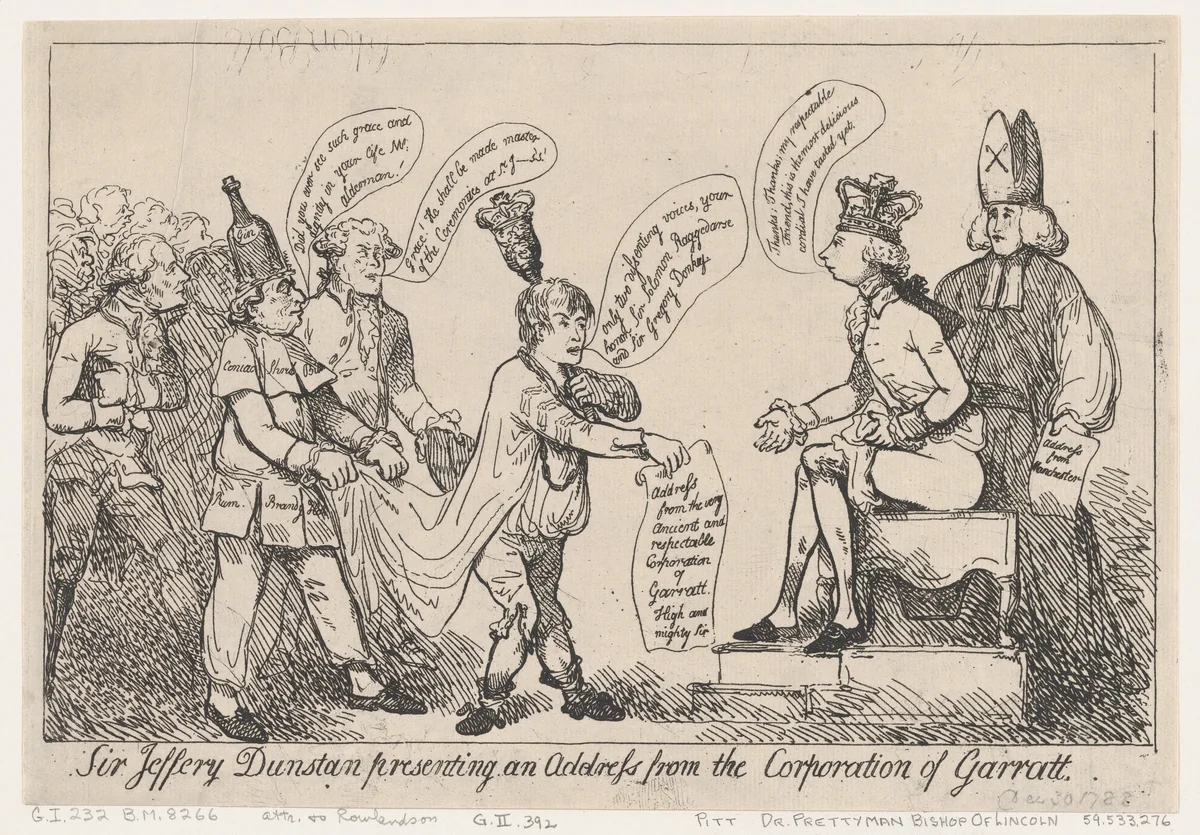 Did you ever see such grace and
dignity in your life Mr.
alderman!
Grace! He shall be made master
of the Ceremonies at St. J——s's!
only two dissenting voices, your
honor, Sir Solomon Raggedarse
and Sir Gregory Donkey
Thanks: Thanks; my respectable
Friend, this is the most delicious
cordial I have tasted yet.
Gin
Coniac Shrub
Rum Brandy
Address
from the very
Ancient and
respectable
Corporation
of
Garratt.
High and
mighty Sir
Address
from
Manchester
Sir Jeffery Dunstan presenting an Address from the Corporation of Garratt.
Dec 30 1788
G.I.232 B.M.8266 attr. to Rowlandson G.II.392 PITT DR. PRETTYMAN BISHOP OF LINCOLN 59.533.276